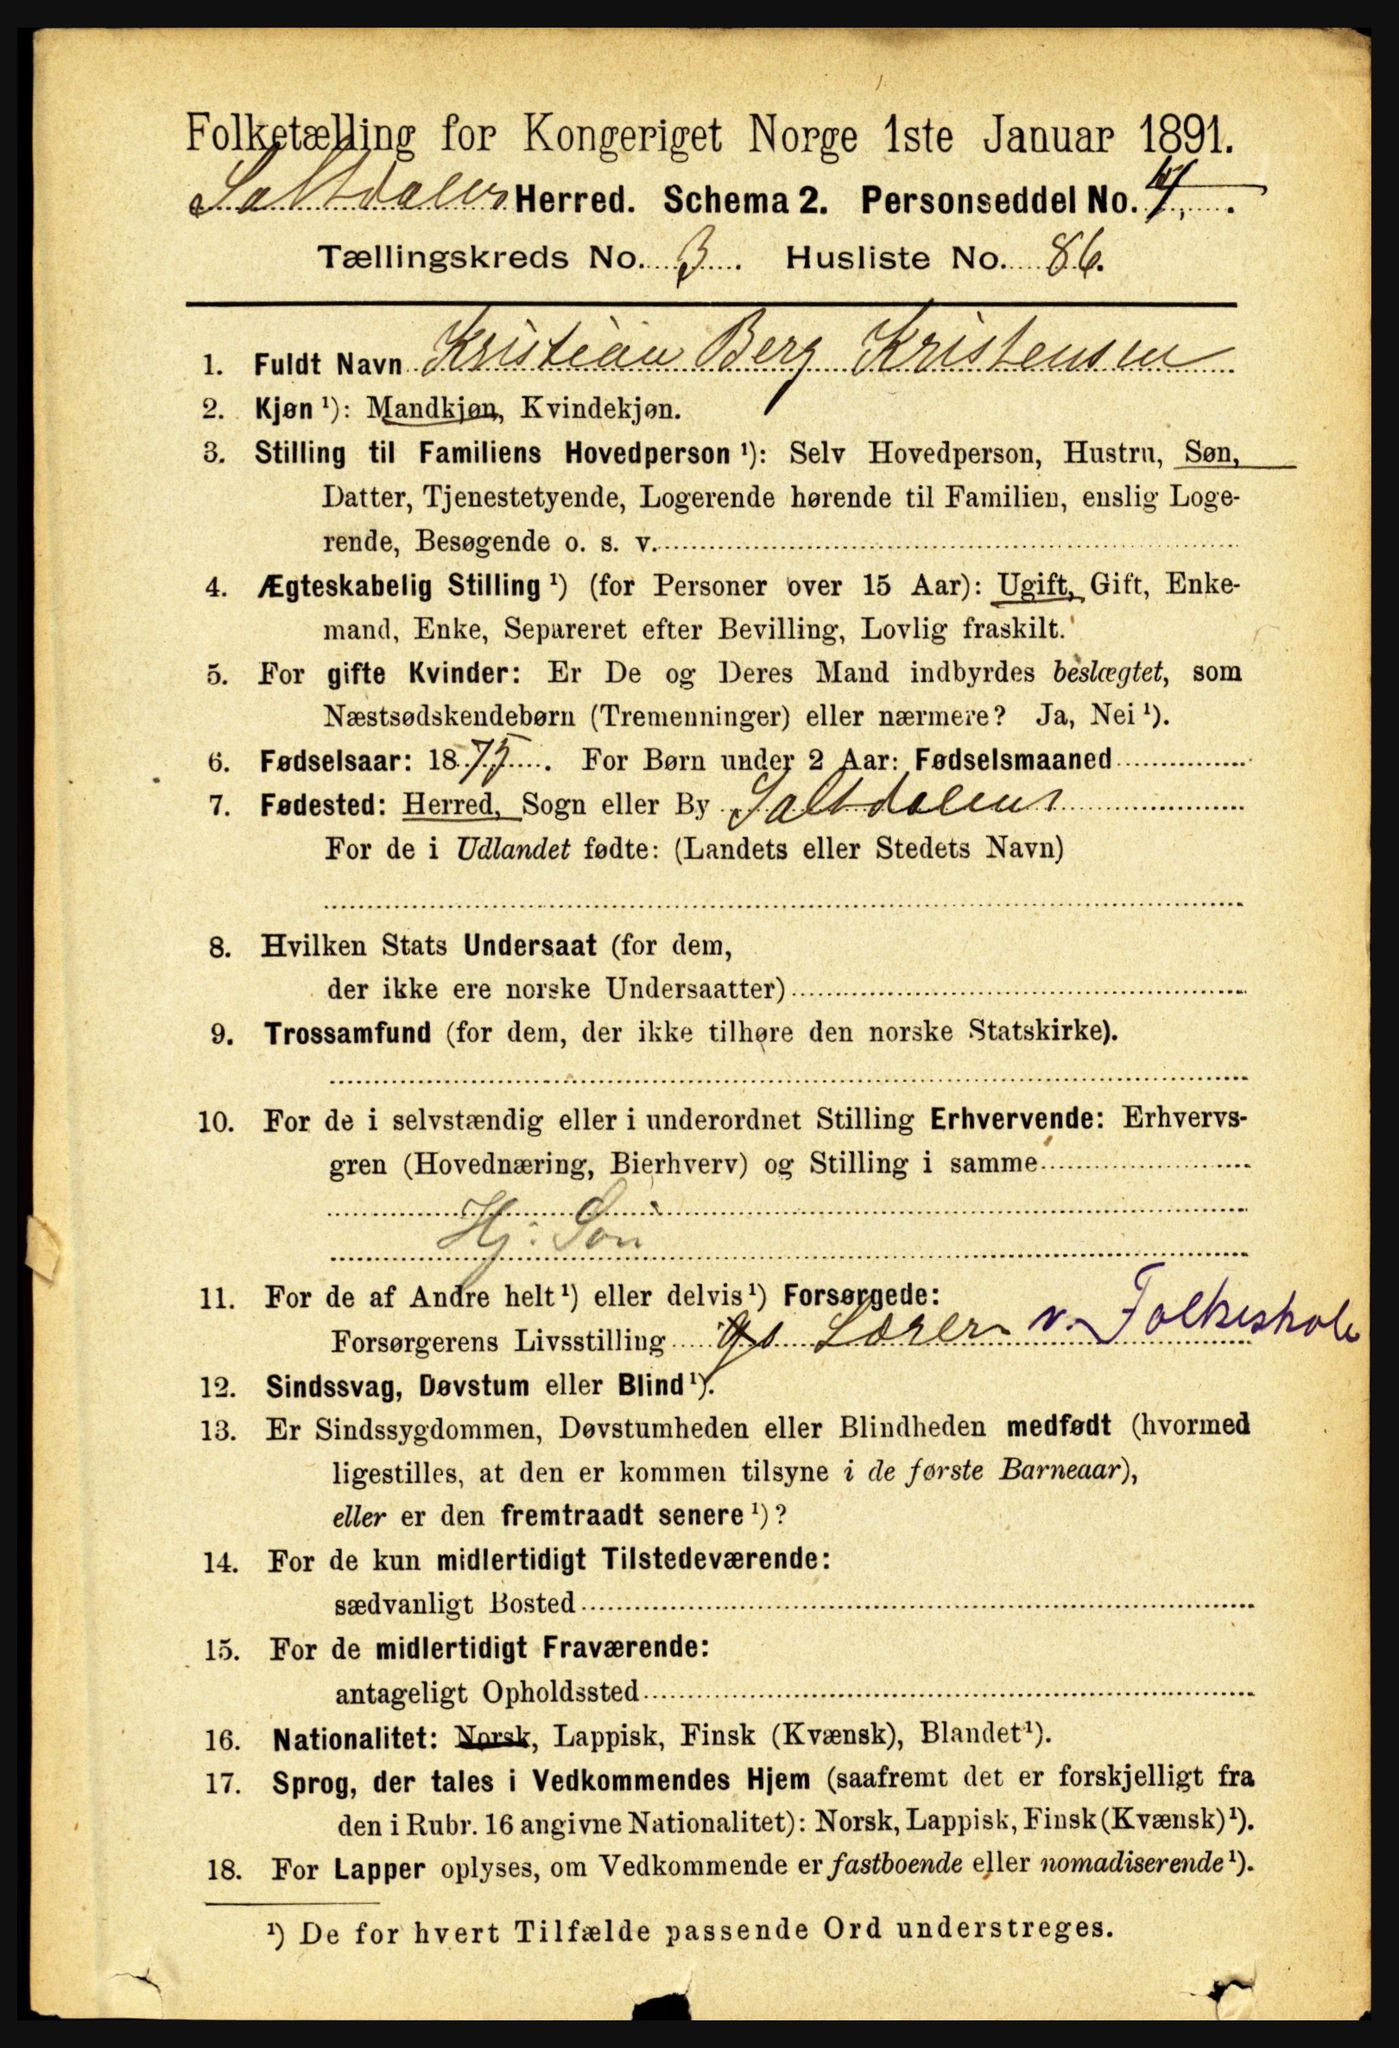 Folketælling for Kongeriget Norge 1ste Januar 1891.
Saltdalens Herred. Schema 2. Personseddel No. 4.
Tællingskreds No. 3. Husliste No. 86.
1. Fuldt Navn Kristian Berg Kristensen
2. Kjøn ¹): Mandkjøn, Kvindekjøn.
3. Stilling til Familiens Hovedperson ¹): Selv Hovedperson, Hustru, Søn,
Datter, Tjenestetyende, Logerende hørende til Familien, enslig Loge-
rende, Besøgende o. s. v.
4. Ægteskabelig Stilling ¹) (for Personer over 15 Aar): Ugift, Gift, Enke-
mand, Enke, Separeret efter Bevilling, Lovlig fraskilt.
5. For gifte Kvinder: Er De og Deres Mand indbyrdes beslægtet, som
Næstsødskendebørn (Tremenninger) eller nærmere? Ja, Nei ¹).
6. Fødselsaar: 1875. For Børn under 2 Aar: Fødselsmaaned
7. Fødested: Herred, Sogn eller By Saltdalens
For de i Udlandet fødte: (Landets eller Stedets Navn)
8. Hvilken Stats Undersaat (for dem,
der ikke ere norske Undersaatter)
9. Trossamfund (for dem, der ikke tilhøre den norske Statskirke).
10. For de i selvstændig eller i underordnet Stilling Erhvervende: Erhvervs-
gren (Hovednæring, Bierhverv) og Stilling i samme
Hj. Søn
11. For de af Andre helt ¹) eller delvis ¹) Forsørgede:
Forsørgerens Livsstilling Lærer v. Folkeskole
12. Sindssvag, Døvstum eller Blind ¹).
13. Er Sindssygdommen, Døvstumheden eller Blindheden medfødt (hvormed
ligestilles, at den er kommen tilsyne i de første Barneaar),
eller er den fremtraadt senere ¹)?
14. For de kun midlertidigt Tilstedeværende:
sædvanligt Bosted
15. For de midlertidigt Fraværende:
antageligt Opholdssted
16. Nationalitet: Norsk, Lappisk, Finsk (Kvænsk), Blandet ¹).
17. Sprog, der tales i Vedkommendes Hjem (saafremt det er forskjelligt fra
den i Rubr. 16 angivne Nationalitet): Norsk, Lappisk, Finsk (Kvænsk) ¹).
18. For Lapper oplyses, om Vedkommende er fastboende eller nomadiserende ¹).
¹) De for hvert Tilfælde passende Ord understreges.